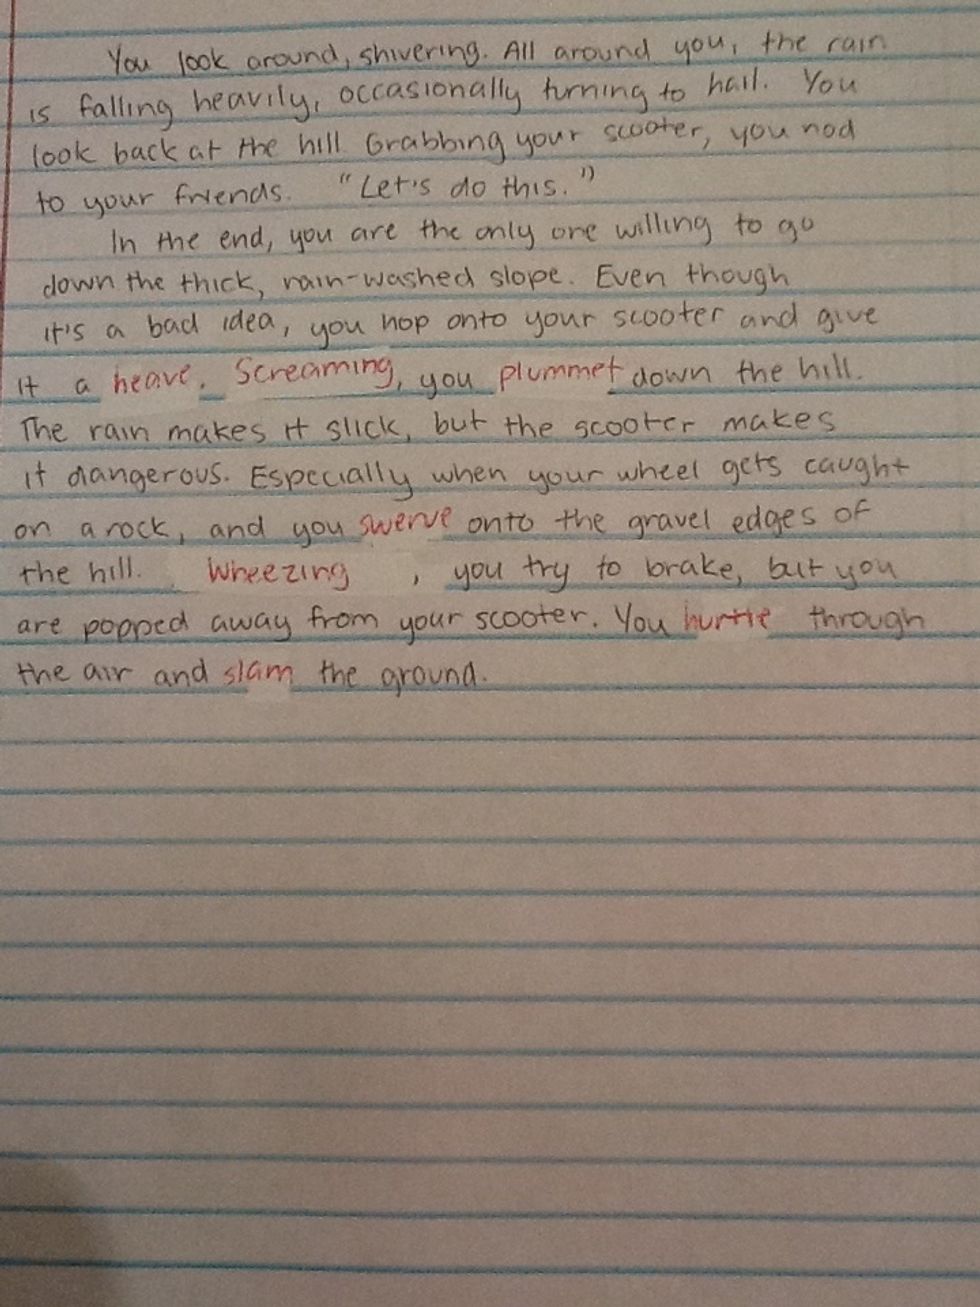 You look around, shivering. All around you, the rain
is falling heavily, occasionally turning to hail. You
look back at the hill. Grabbing your scooter, you nod
to your friends. "Let's do this."
In the end, you are the only one willing to go
down the thick, rain-washed slope. Even though
it's a bad idea, you hop onto your scooter and give
it a heave. Screaming, you plummet down the hill.
The rain makes it slick, but the scooter makes
it dangerous. Especially when your wheel gets caught
on a rock, and you swerve onto the gravel edges of
the hill. Wheezing, you try to brake, but you
are popped away from your scooter. You hurtle through
the air and slam the ground.